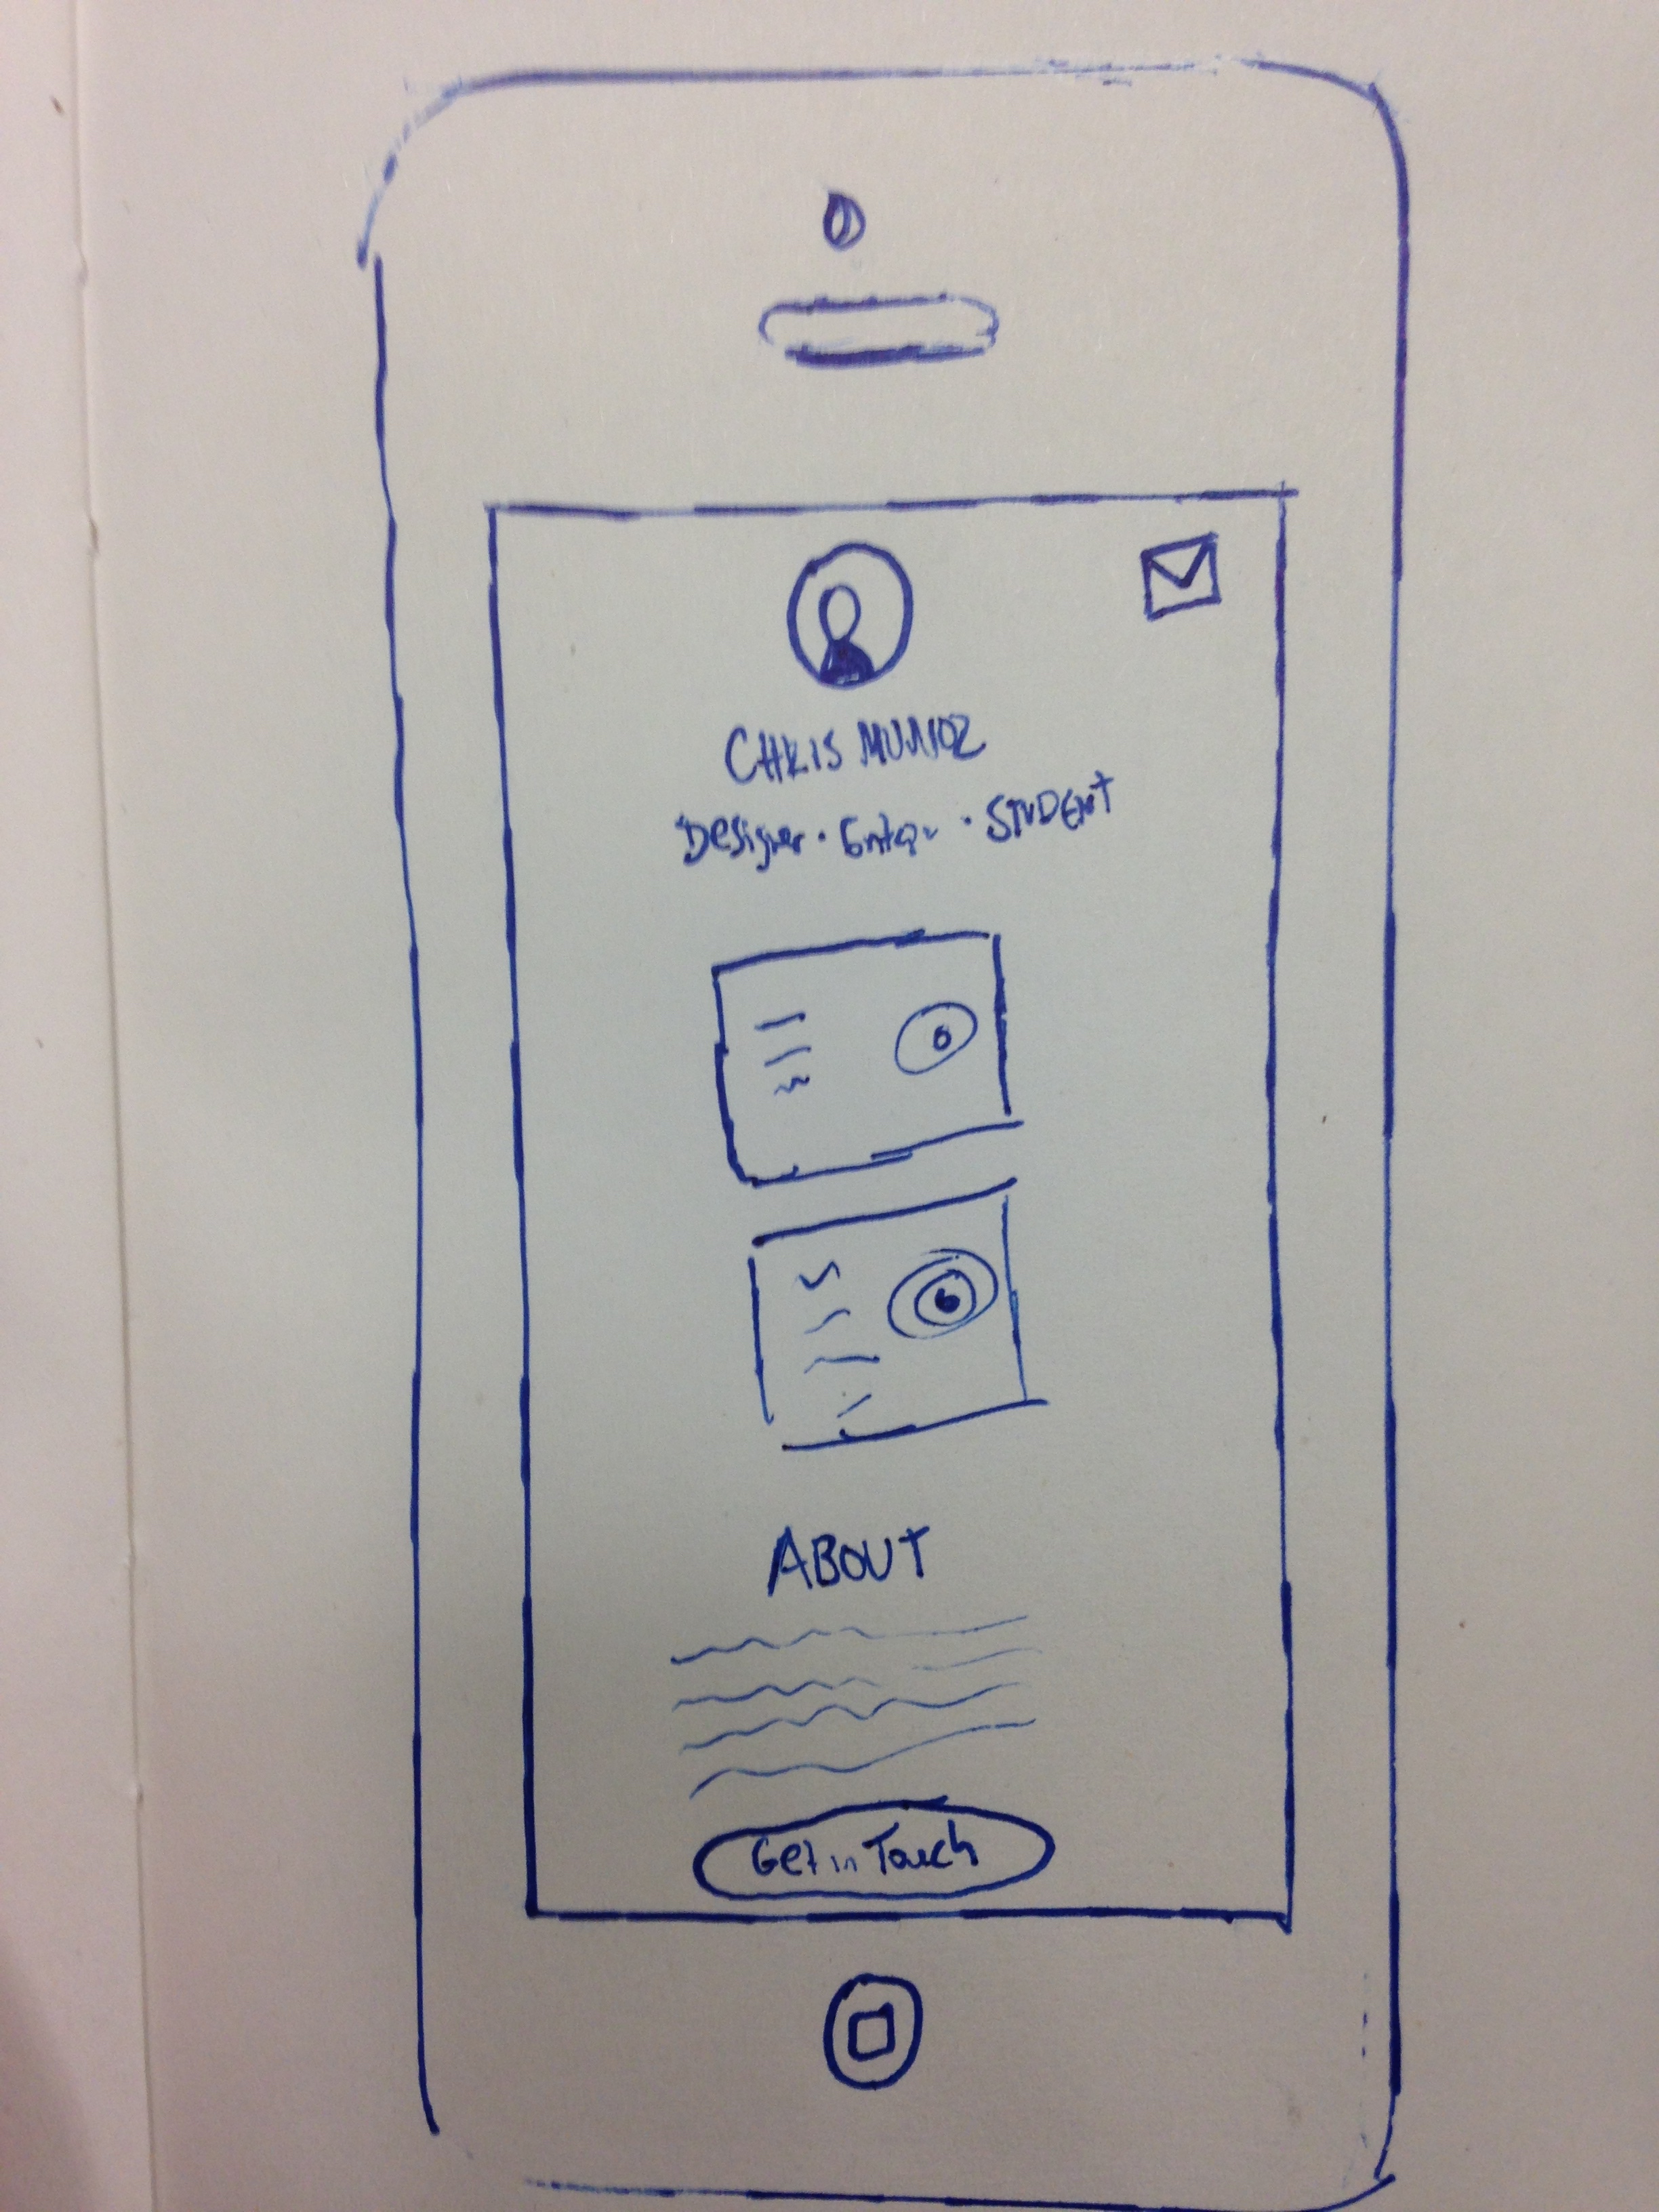 CHRIS MUNIOZ
Designer · · STUDENT
ABOUT
Get in Touch